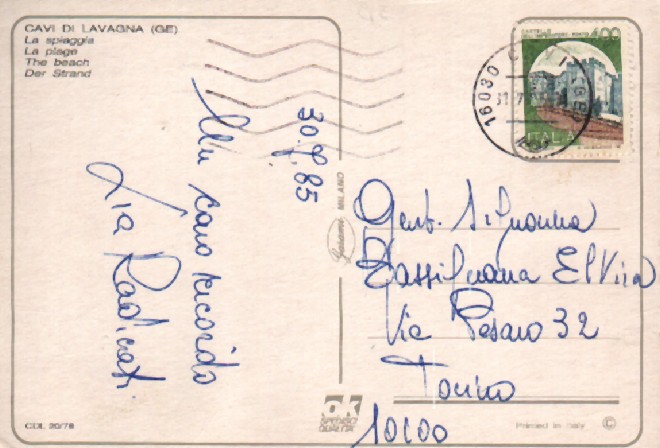 CAVI DI LAVAGNA (GE)
La spiaggia
La plage
The beach
Der Strand
30.7.85
Un caro ricordo
Lia Radicati
MILANO
CASTELLO
400
ITALIA
16030
31.7
Gent. Signorina
Elvira
Via Pesaro 32
Torino
10100
ok
SPECIAL
QUALITÀ
COL 20/78
Printed in Italy ©